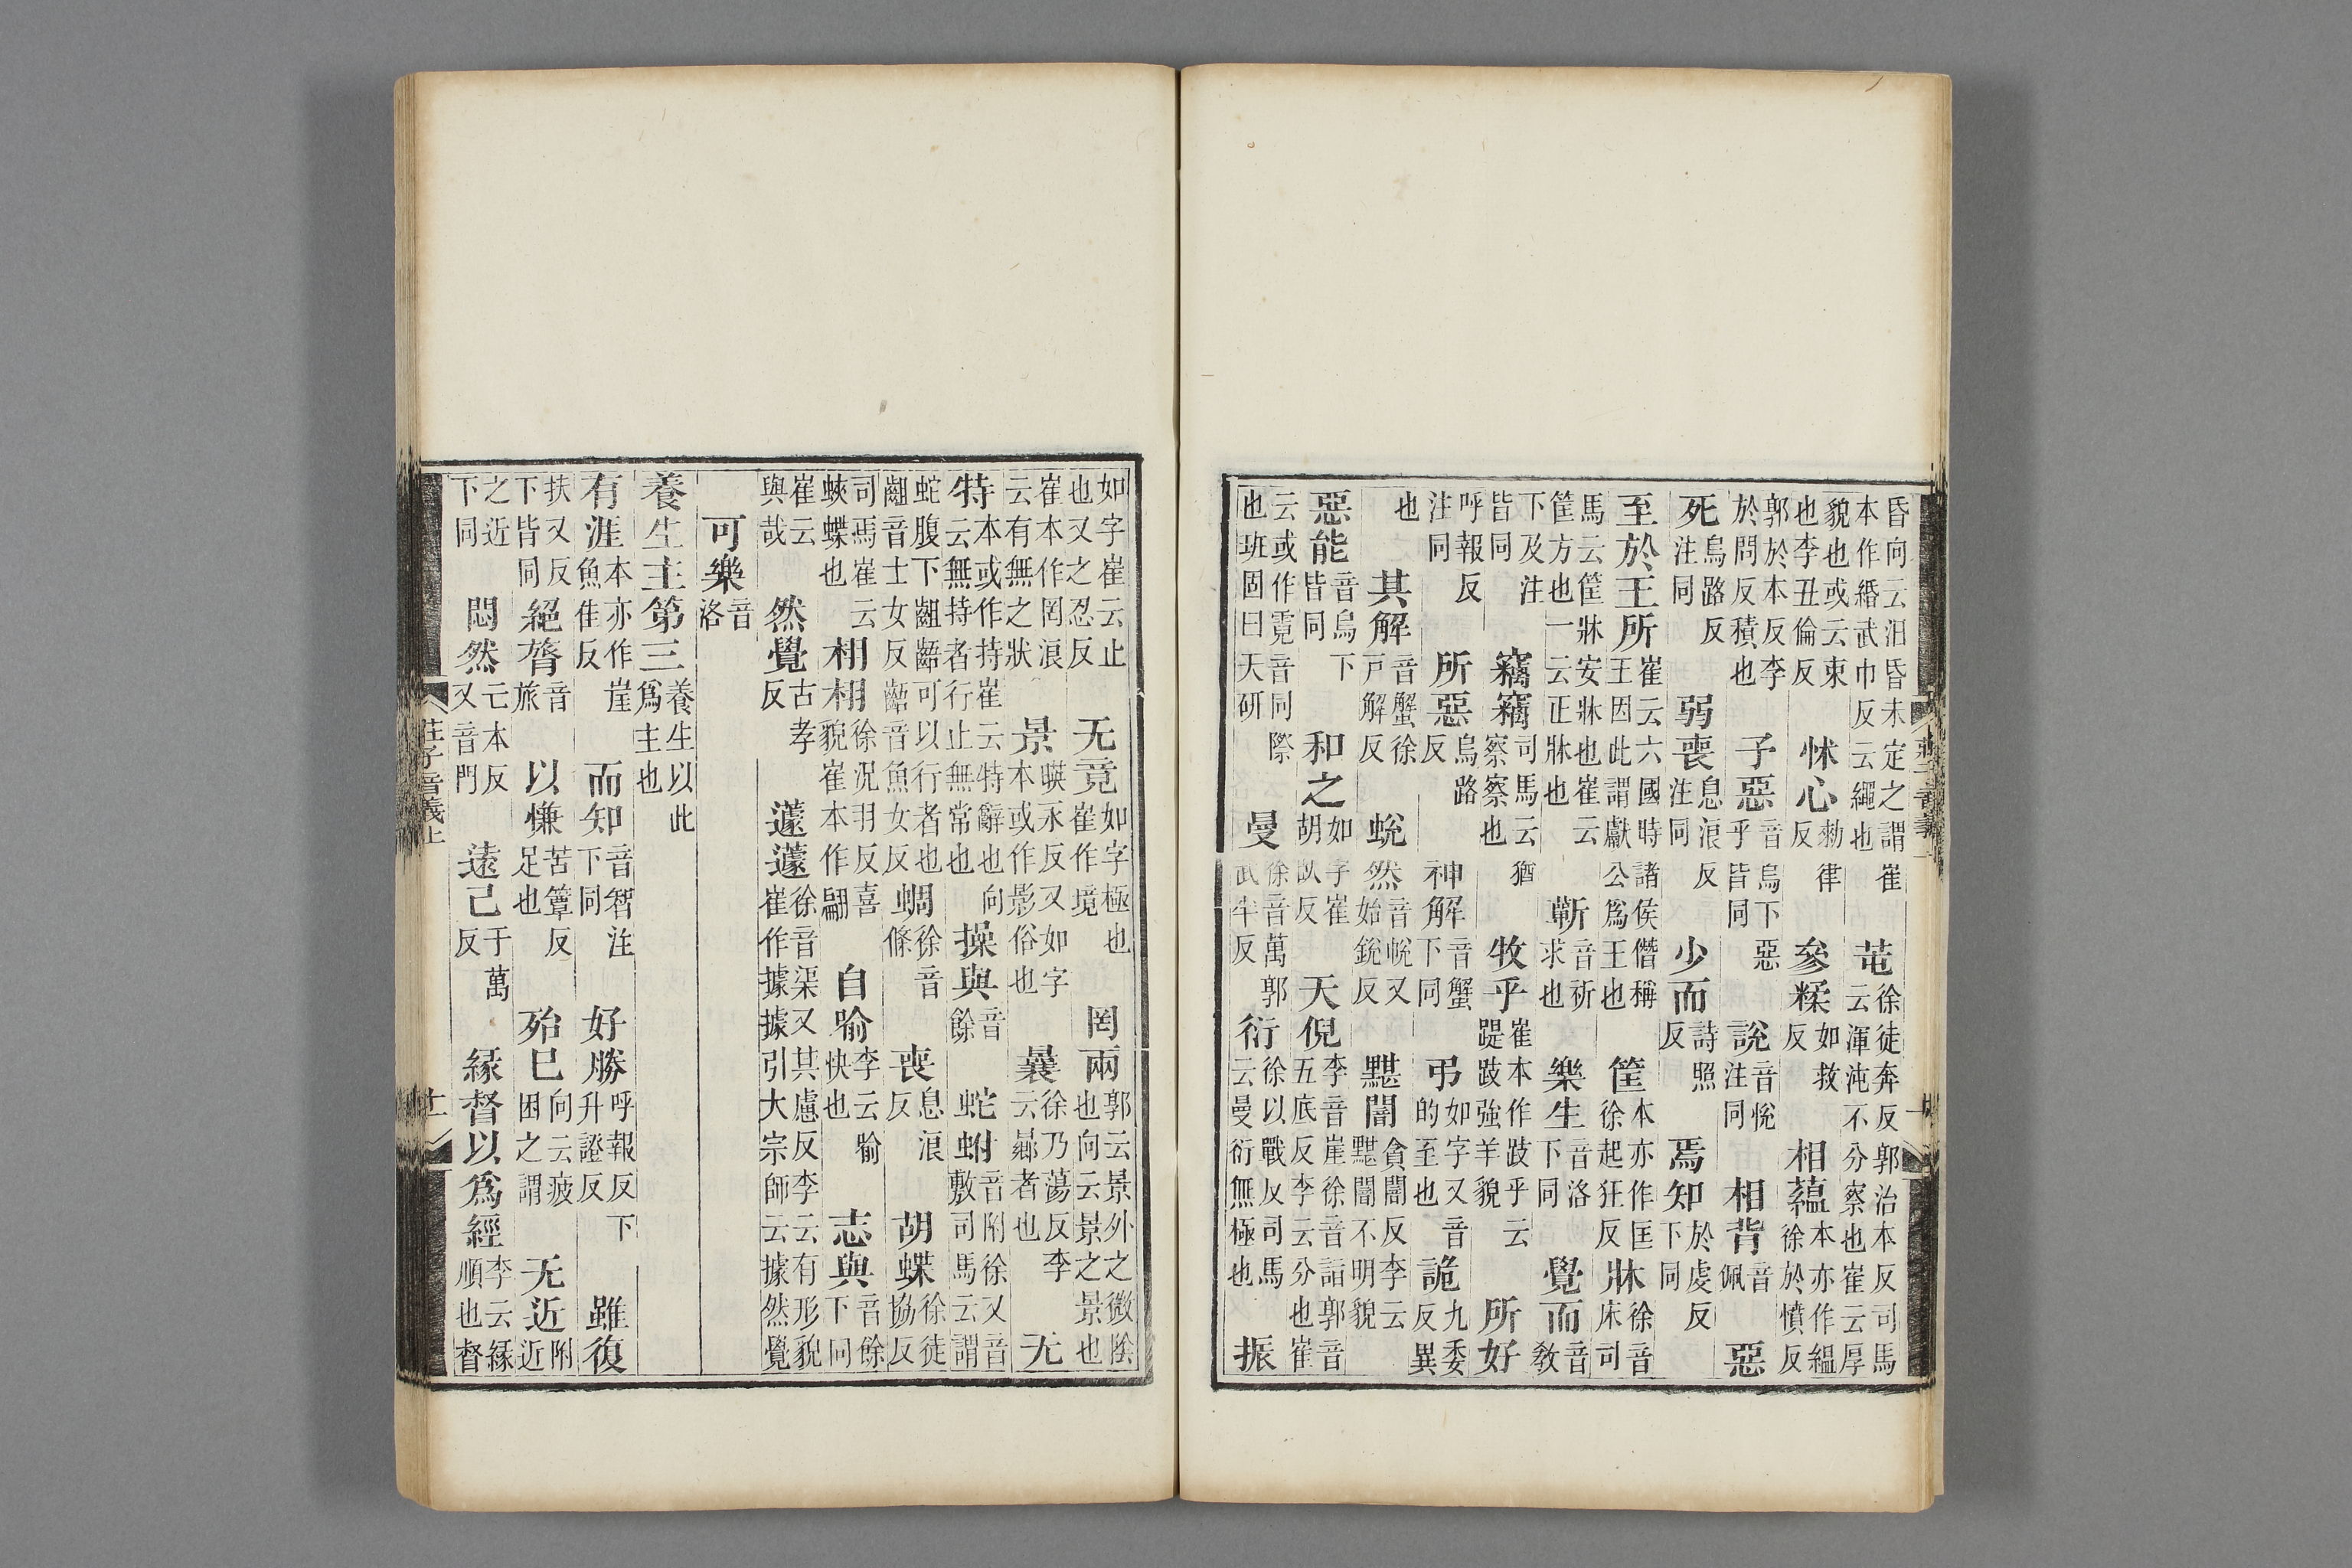 昏向云汨昏未定之謂崔本作緡武巾反云繩也芚徐徒奔反郭治本反司馬云渾沌不分察也崔云厚
貌也或云束也李丑倫反怵心勑律反參糅如救反相蘊本亦作緼徐於憤反
郭於本反李於問反積也子惡音烏下惡乎皆同說音悅注同相背音佩惡
死烏路反注同弱喪息浪反注同少而詩照反焉知於虔反下同
至於王所崔云六國時諸侯僭稱王因此謂獻公爲王也筐本亦作匡徐起狂反牀徐音床司
馬云筐牀安牀也崔云筐方也一云正牀也蘄音祈求也樂生音洛下同覺而音敎
下及注皆同竊竊司馬云猶察察也牧乎崔本作跂乎云踶跂強羊貌所好
呼報反注同所惡烏路反神解音蟹下同弔如字又音的至也詭九委反異
也其解音蟹徐戸解反蛻然音帨又始銳反黮闇貪闇反李云黮闇不明貌
惡能音烏下皆同和之如字崔胡臥反天倪李音崖徐音詣郭音五底反李云分也崔
云或作霓音同際也班固曰天研曼徐音萬郭武半反衍徐以戰反司馬云曼衍無極也振
如字崔云止也又之忍反无竟如字極也崔作境罔兩郭云景外之微陰也向云景之景也
崔本作罔浪云有無之狀景暎永反又如字本或作影俗也曩徐乃蕩反李云曏者也无
特本或作持崔云特辭也向云無持者行止無常也操與音餘蛇蚹音附徐又音敷司馬云謂
蛇腹下齟齬可以行者也齟音士女反齬音魚女反蜩徐音條喪息浪反胡蝶徐徒協反
司馬崔云蛺蝶也栩栩徐況羽反喜貌崔本作翩自喻李云喻快也志與音餘下同
崔云與哉然覺古孝反蘧蘧徐音渠又其慮反李云有形貌崔作據據引大宗師云據然覺
可樂音洛
養生主第三養生以此爲主也
有涯本亦作崖魚佳反而知音智注下同好勝呼報反下升證反雖復
扶又反下皆同絕膂音旅以慊苦簟反足也殆已向云疲困之謂无近附近
之近下同悶然亡本反又音門遠己于萬反緣督以爲經李云緣順也督
莊子音義上
十一